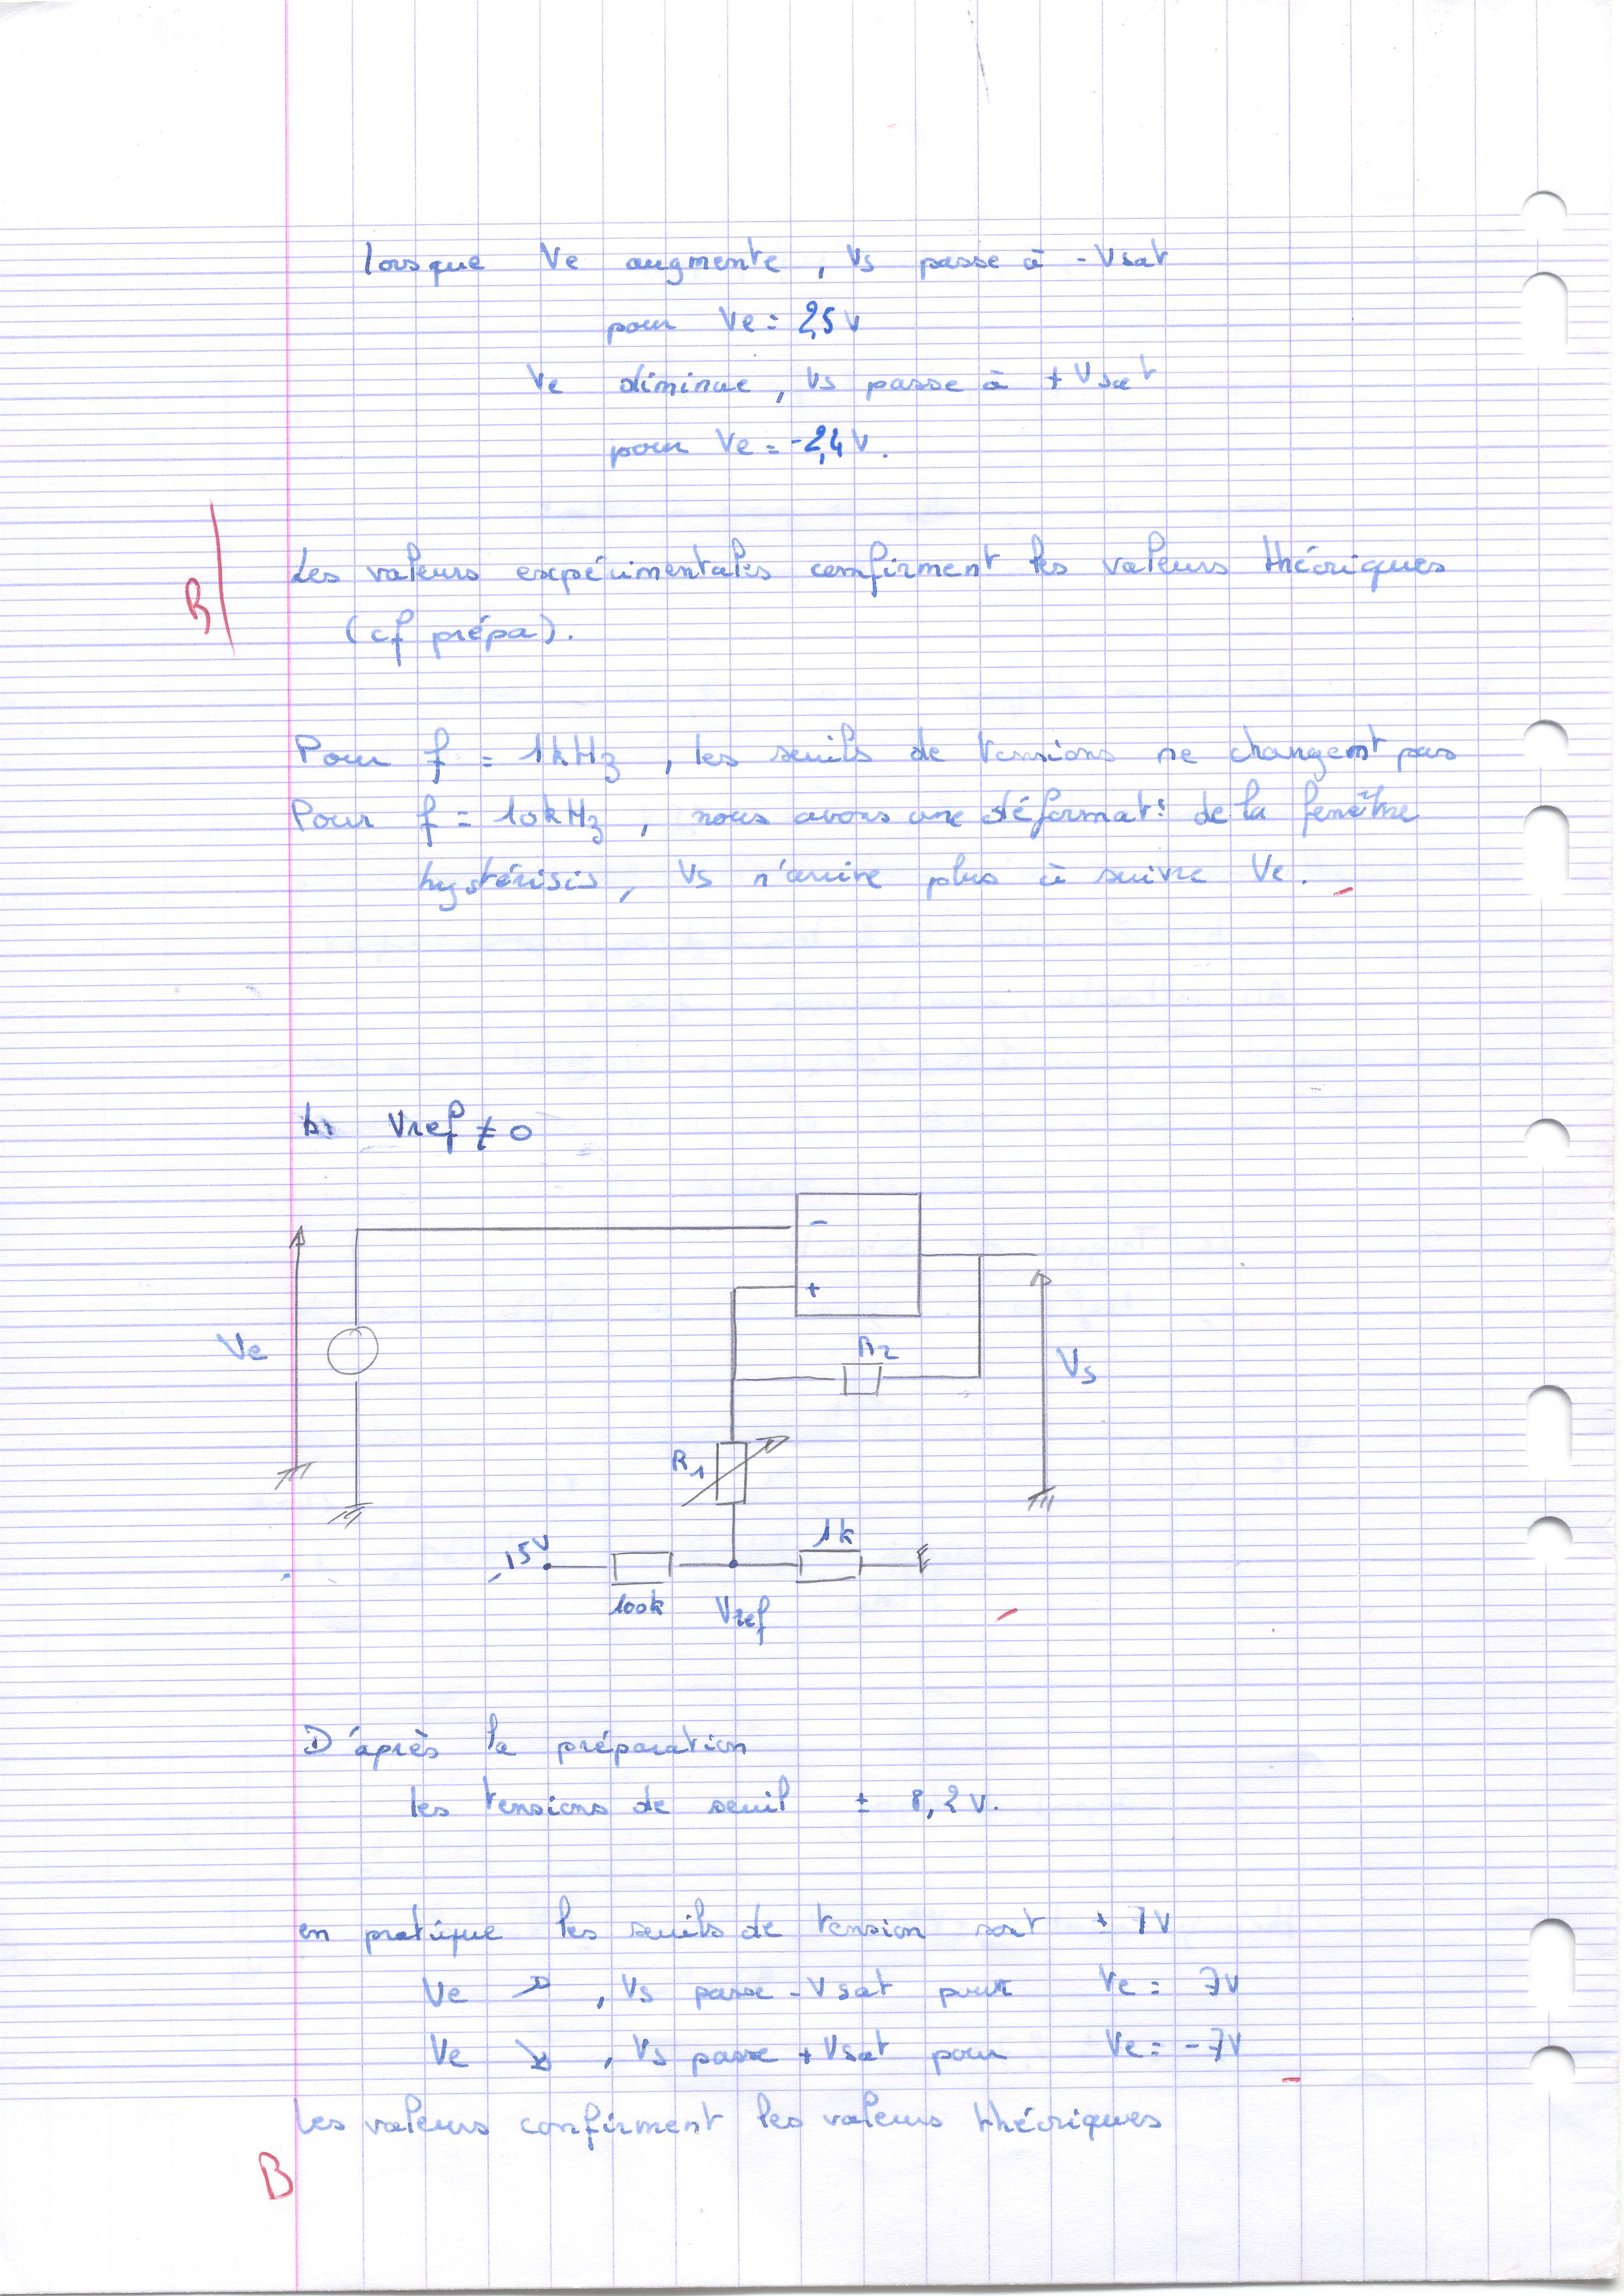 lorsque Ve augmente, Vs passe à -Vsat
pour Ve = 2,5 V
Ve diminue, Vs passe à + Vsat
pour Ve = -2,4 V.
B
Les valeurs expérimentales confirment les valeurs théoriques
(cf prépa).
Pour f = 1kHz, les seuils de tensions ne changent pas
Pour f = 10kHz, nous avons une déformat° de la fenêtre
hystérisis, Vs n'arrive plus à suivre Ve.
b. Vref ≠ 0
-
+
R2
Ve
Vs
R1
-15V
1k
100k
Vref
D'après la préparation
les tensions de seuil ± 8,2 V.
en pratique les seuils de tension sont ± 7V
Ve ↗, Vs passe -Vsat pour Ve = 7V
Ve ↘, Vs passe +Vsat pour Ve = -7V
Les valeurs confirment les valeurs théoriques
B